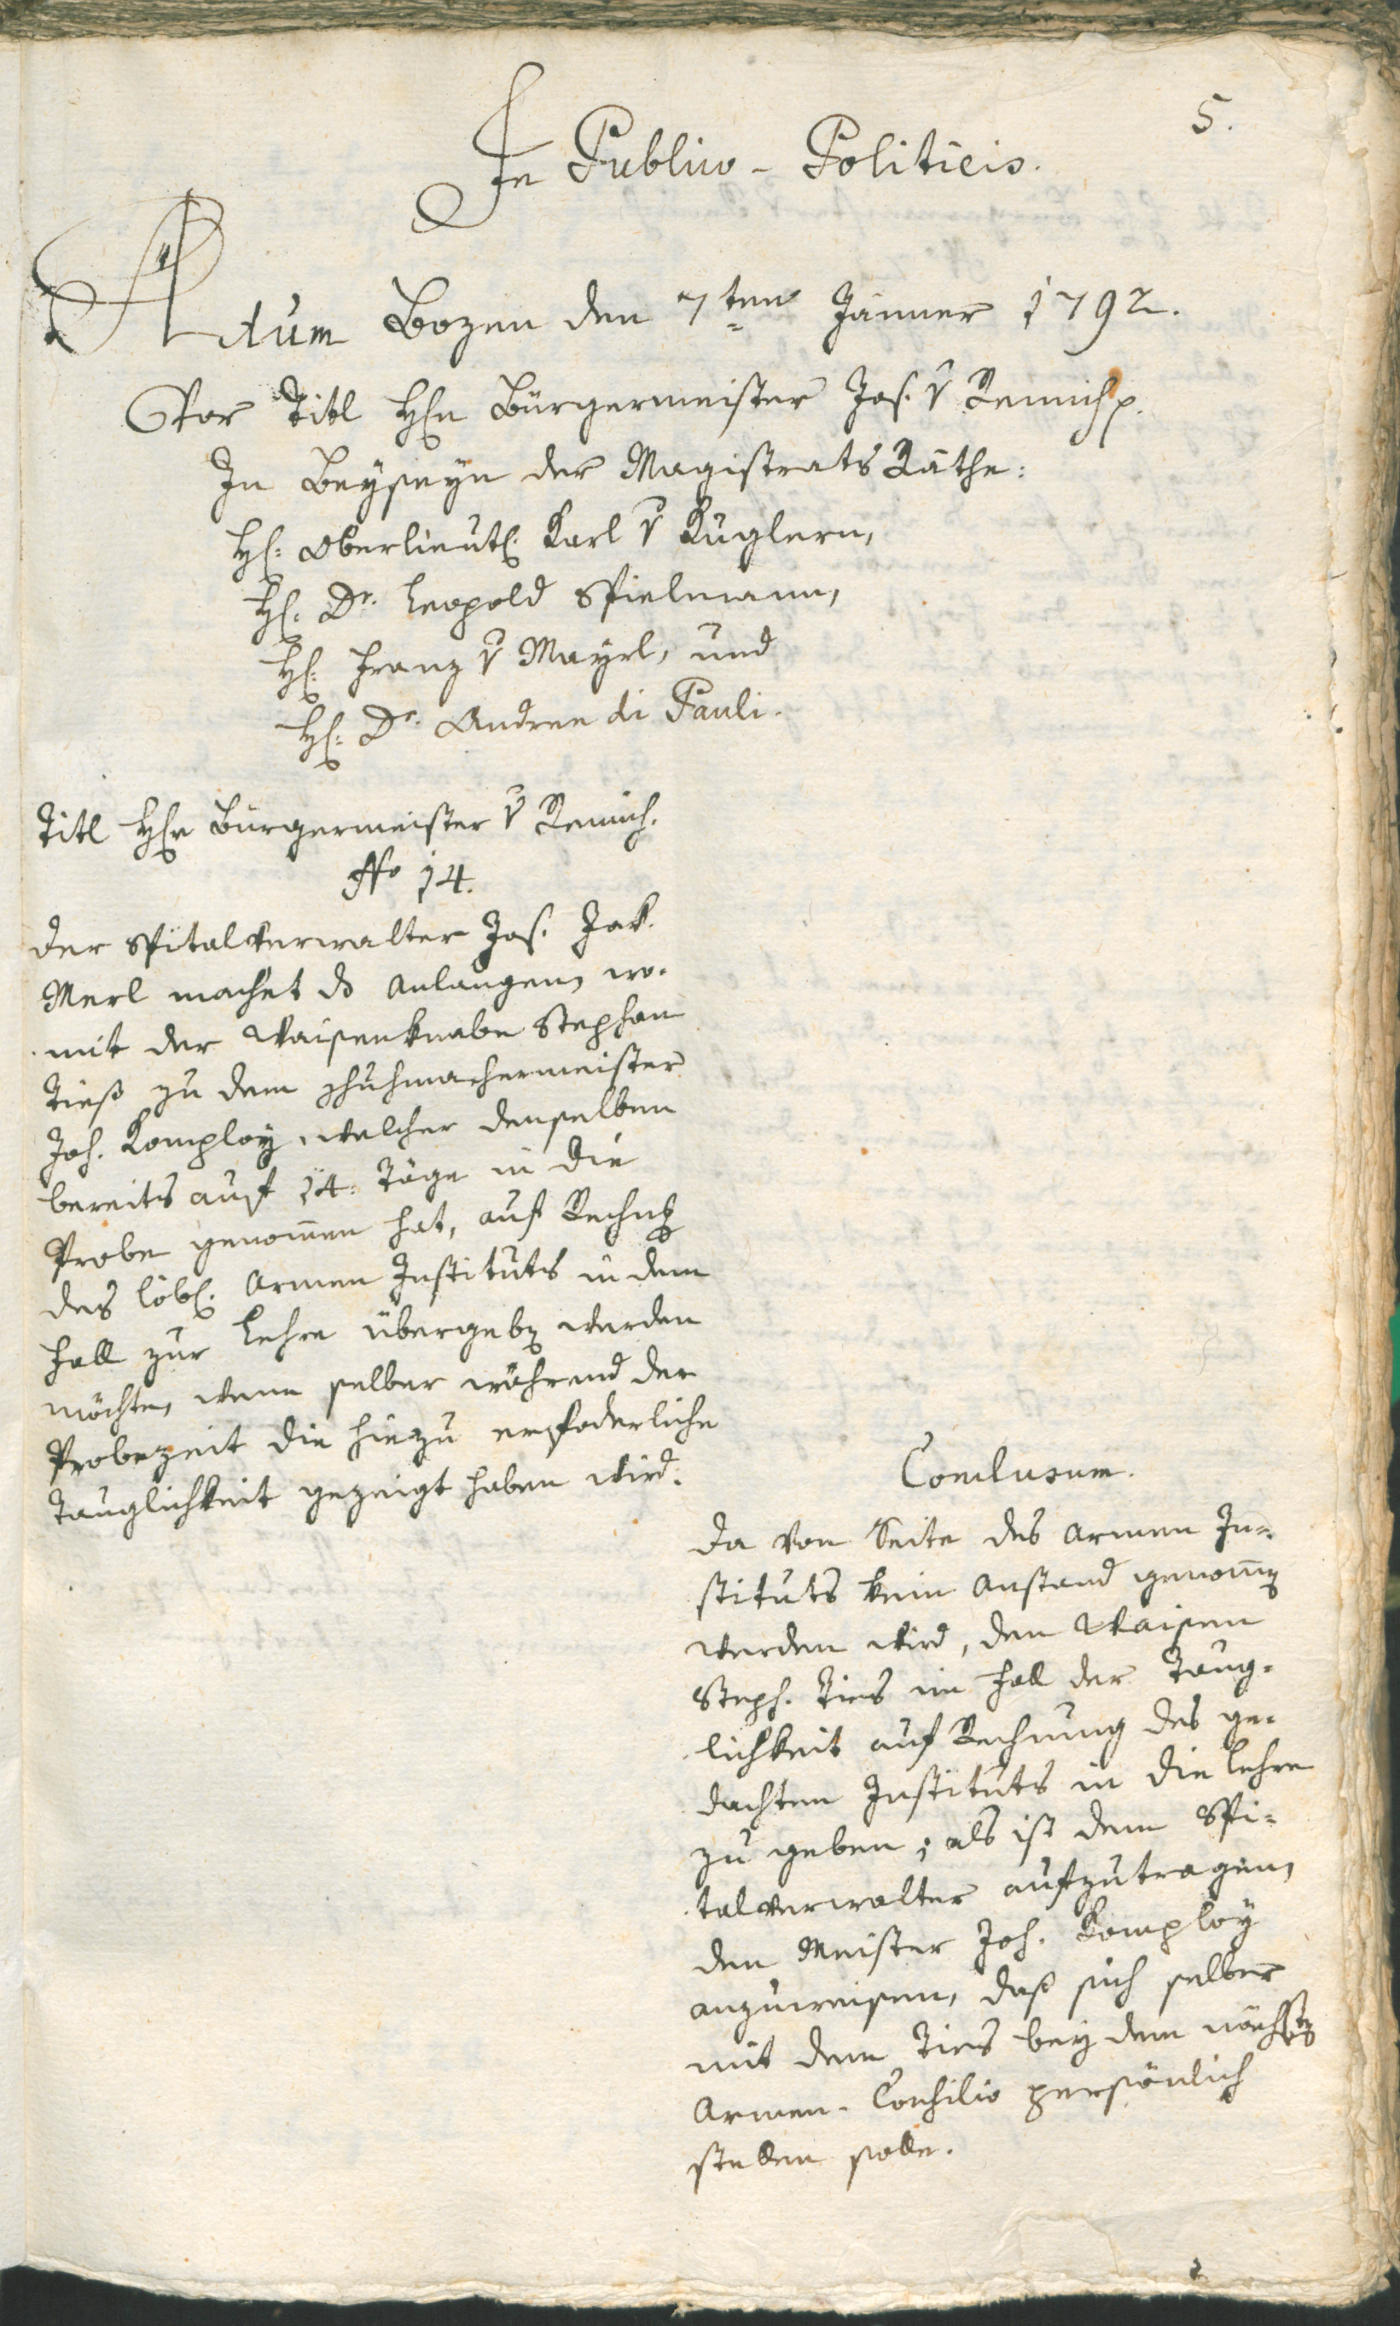 5.
In Publico-Politicis.
Actum Bozen den 7ten Jänner 1792.
Vor Titl H[err]n Bürgermeister Jos. v Remich p.
In Beyseyn der Magistrats Räthe:
H: Oberlieut: Karl v Kuglern,
H: Dr. Leopold Spielmann,
H: Franz v Mayrl, und
H: Dr. Andree di Pauli.
Titl Hr Bürgermeister v Remich.
No 14.
Der Spitalverwalter Jos. Jak.
Merl machet das Anlangen, wo-
mit der Waisenknabe Stephan
Tieß zu dem Schuhmachermeister
Joh. Komploy, welcher denselben
bereits auf 14. Täge in die
Probe genom̄en hat, auf Rechng
des löbl. Armen Instituts in dem
Fall zur Lehre übergeben werden
möchte, wenn selber während der
Probezeit die hiezu erfoderliche
Tauglichkeit gezeigt haben wird.
Conclusum.
Da von Seite des Armen In-
stituts kein Anstand genom̄en
werden wird, den Waisen
Steph. Ties im Fall der Taug-
lichkeit auf Rechnung des ge-
dachten Instituts in die Lehre
zu geben; als ist dem Spi-
talverwalter aufzutragen,
den Meister Joh. Komploy
anzuweisen, daß sich selber
mit dem Ties bey dem nächsten
Armen-Consilio persönlich
stellen solle.